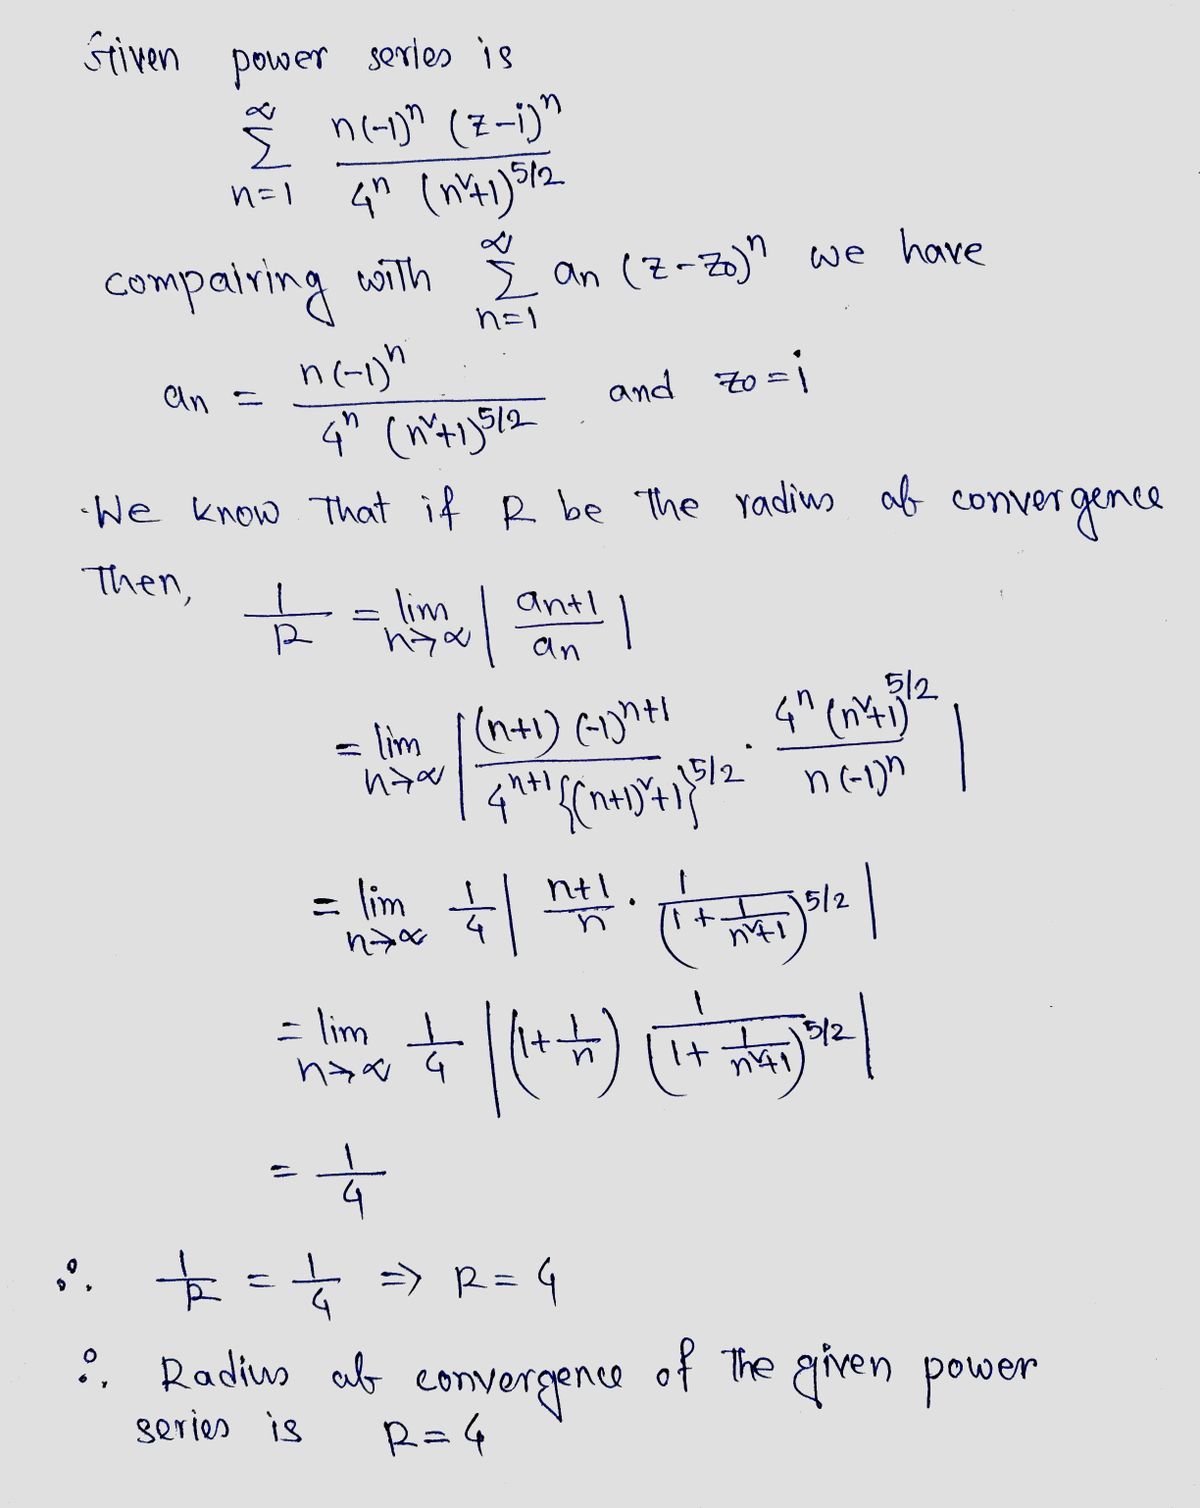 Given power series is
∞
Σ n(-1)ⁿ (z-i)ⁿ
n=1 4ⁿ (n²+1)^5/2
compairing with Σ_{n=1}^∞ an (z-z0)ⁿ we have
an = n(-1)ⁿ / 4ⁿ (n²+1)^5/2 and z0 = i
We know That if R be The radius of convergence
Then, 1/R = lim_{n→∞} | an+1 / an |
= lim_{n→∞} | (n+1) (-1)^{n+1} / 4^{n+1} {(n+1)²+1}^5/2 · 4ⁿ (n²+1)^5/2 / n (-1)ⁿ |
= lim_{n→∞} 1/4 | n+1 / n · 1 / (1 + 1/n²+1)^5/2 |
= lim_{n→∞} 1/4 | (1 + 1/n) 1 / (1 + 1/n²+1)^5/2 |
= 1/4
∴ 1/R = 1/4 => R = 4
∴ Radius of convergence of The given power
series is R = 4